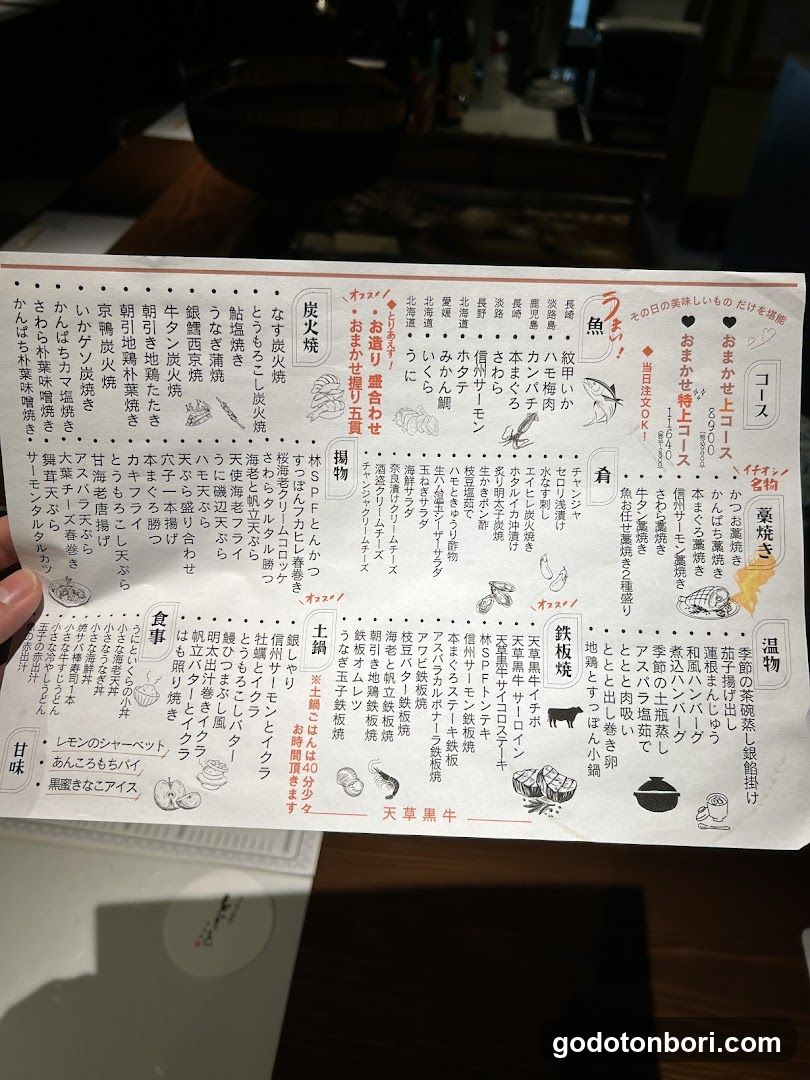 その日の美味しいもの だけを堪能
コース
おまかせ上コース
8900
おまかせ特上コース
11640
◆当日注文OK!
うまい!
魚
長崎 紋甲いか
淡路島 ハモ梅肉
鹿児島 カンパチ
長崎 本まぐろ
淡路 さわら
長野 信州サーモン
北海道 ホタテ
愛媛 みかん鯛
北海道 いくら
北海道 うに
◆とりあえず!
・お造り 盛合わせ
・おまかせ握り五貫
オススメ
炭火焼
なす炭火焼
とうもろこし炭火焼
鮎塩焼き
うなぎ蒲焼
銀鱈西京焼
牛タン炭火焼
朝引き地鶏たたき
朝引地鶏朴葉焼き
京鴨炭火焼
いかゲソ炭焼き
かんぱちカマ塩焼き
さわら朴葉味噌焼き
かんぱち朴葉味噌焼き
イチオシ
名物
藁焼き
かつお藁焼き
かんぱち藁焼き
本まぐろ藁焼き
信州サーモン藁焼き
さわら藁焼き
牛タン藁焼き
魚お任せ藁焼き2種盛り
肴
チャンジャ
セロリ浅漬け
水なす刺し
エイヒレ炭火焼き
ホタルイカ沖漬け
炙り明太子炭焼
生かきポン酢
枝豆塩茹で
ハモときゅうり酢物
生ハム温玉シーザーサラダ
玉ねぎサラダ
海鮮サラダ
奈良漬けクリームチーズ
酒盗クリームチーズ
チャンジャクリームチーズ
揚物
林SPFとんかつ
すっぽんフカヒレ春巻き
桜海老クリームコロッケ
さわらタルタル勝つ
海老と帆立天ぷら
天使海老フライ
うに磯辺天ぷら
ハモ天ぷら
天ぷら盛り合わせ
穴子一本揚げ
本まぐろ勝つ
カキフライ
とうもろこし天ぷら
甘海老唐揚げ
アスパラ天ぷら
大葉チーズ春巻き
舞茸天ぷら
サーモンタルタルカツ
温物
季節の茶碗蒸し銀餡掛け
茄子揚げ出し
蓮根まんじゅう
和風ハンバーグ
煮込ハンバーグ
季節の土瓶蒸し
アスパラ塩茹で
ととと肉吸い
ととと出し巻き卵
地鶏とすっぽん小鍋
鉄板焼
天草黒牛イチボ
天草黒牛サーロイン
天草黒牛サイコロステーキ
林SPFトンテキ
信州サーモン鉄板焼
本まぐろステーキ鉄板
アスパラカルボナーラ鉄板焼
アワビ鉄板焼
枝豆バター鉄板焼
海老と帆立鉄板焼
朝引き地鶏鉄板焼
鉄板オムレツ
うなぎ玉子鉄板焼
天草黒牛
オススメ
土鍋
※土鍋ごはんは40分少々
お時間頂きます
銀しゃり
信州サーモンとイクラ
牡蠣とイクラ
とうもろこしバター
鰻ひつまぶし風
明太出汁巻きイクラ
帆立バターとイクラ
はも照り焼き
食事
うにといくらの小丼
小さな海老天丼
小さなうなぎ丼
小さな海鮮丼
焼サバ棒寿司1本
小さな牛すじうどん
小さな冷やしうどん
玉子の赤出汁
の赤出汁
甘味
・レモンのシャーベット
・あんころもちパイ
・黒蜜きなこアイス
godotonbori.com